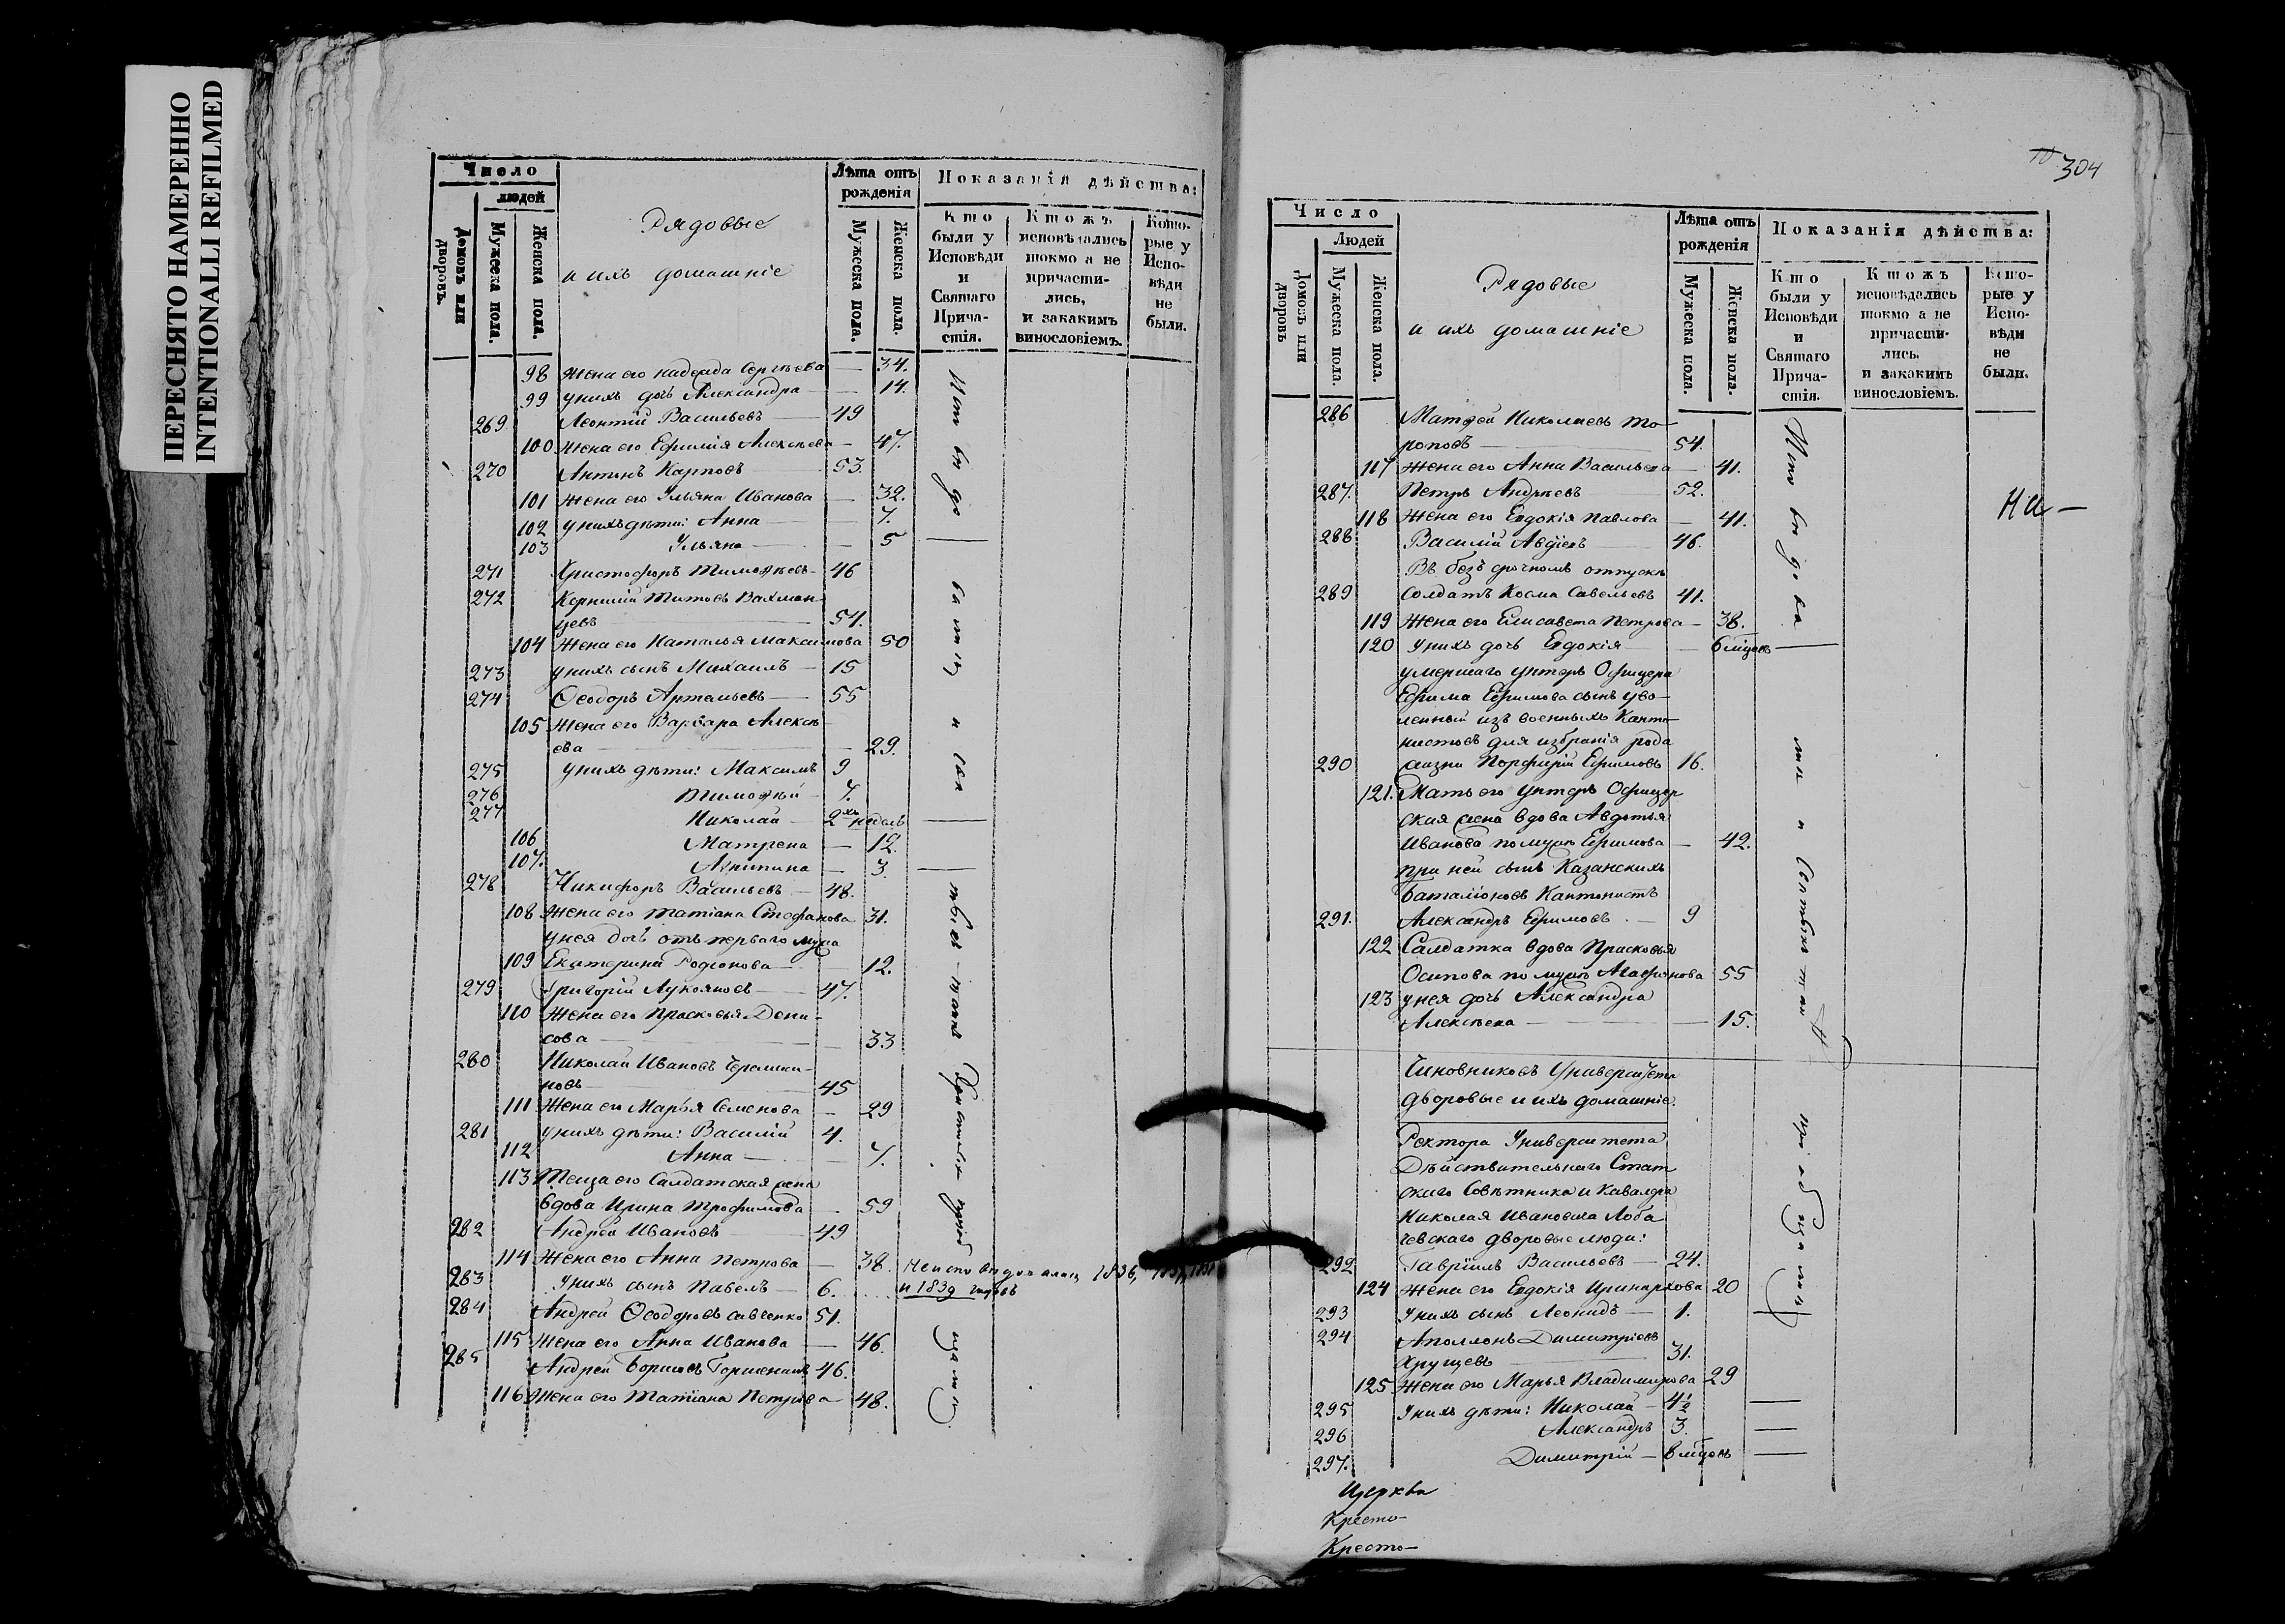 ПЕРЕСНЯТО НАМЕРЕННО
INTENTIONALLI REFILMED
Число
людей
Домовъ или дворовъ.
Мужеска пола.
Женска пола.
Рядовые
и ихъ домашніе
Лѣта отъ рожденія
Мужеска пола.
Женска пола.
Показанія дѣйства:
Кто были у Исповѣди и Святаго Причастія.
Ктожъ исповѣдались токмо а не причастились, и закакимъ винословіемъ.
Которые у Исповѣди не были.
98 Жена его Надежда Сергѣева — 34.
99 у нихъ дочь Александра — 14.
269 Леонтій Васильевъ — 49
100 Жена его Ефимія Алексѣева — 47.
270 Антонъ Карповъ — 53.
101 Жена его Ульяна Иванова — 32.
102 у нихъ дѣти: Анна — 7.
103 Ульяна — 5
271 Христофоръ Тимоѳеевъ — 46
272 Корнилій Титовъ
цевъ — 54.
104 Жена его Наталья Максимова 50
273 у нихъ сынъ Михаилъ — 15
274 Ѳеодоръ Артемьевъ — 55
105 Жена его Варвара Алексѣ-
ева — 29.
275 у нихъ дѣти: Максимъ 9
276 Тимоѳей — 7.
277 Николай — 2хъ недель
106 Матрена — 12.
107. — 3.
278 Никифоръ Васильевъ — 48.
108 Жена его Татіана Стефанова 31.
у нея дочь отъ перваго мужа
109 Екатерина Родіонова — 12.
279 Григорій Лукояновъ — 47.
110 Жена его Прасковья Дени-
сова — 33
280 Николай Ивановъ
новъ — 45
111 Жена его Марья Семенова — 29
281 у нихъ дѣти: Василій 4.
112 Анна — 7.
113 Теща его Салдатская жена
вдова Ирина Трофимова — 59
282 Андрей Ивановъ 49
114 Жена его Анна Петрова — 38.
283 у нихъ сынъ Павелъ — 6.
284 Андрей Ѳеодоровъ Савченко 51.
115 Жена его Анна Иванова — 46.
285 Андрей Борисовъ 46.
116 Жена его Татіана Петрова — 48.
и 1839 годовъ
304
Число
Людей
Домовъ или дворовъ
Мужеска пола.
Женска пола.
Рядовые
и ихъ домашніе
Лѣта отъ рожденія
Мужеска пола.
Женска пола.
Показанія дѣйства:
Кто были у Исповѣди и Святаго Причастія.
Ктожъ исповѣдались токмо а не причастились. и закакимъ винословіемъ.
Которые у Исповѣди не были.
286 Матѳей Николаевъ То-
роповъ — 54.
117 Жена его Анна Васильева — 41.
287. Петръ Андреевъ 52.
118 Жена его Евдокія Павлова — 41.
288 Василій Авдіевъ 46.
Въ безъ срочномъ отпускѣ
289 Солдатъ Косма Савельевъ 41.
119 Жена его Елисавета Петрова — 38.
120 у нихъ дочь Евдокія — 6 мѣцовъ
умершаго Унтеръ Офицера
Ефима Ефимова сынъ уво-
ленный изъ военныхъ Канто-
нистовъ для избранія рода
290 жизни Порфирій Ефимовъ 16.
121. Мать его Унтеръ Офицер
ская жена вдова Авдотья
Иванова по мужѣ Ефимова — 42.
при ней сынъ Казанскихъ
баталіоновъ Кантонистъ
291. Александръ Ефимовъ — 9
122 Салдатка вдова Прасковья
Осипова по мужѣ Агафонова 55
123 у нея дочь Александра
Алексѣева — 15.
Чиновниковъ Университета
дворовые и ихъ домашніе.
Ректора Университета
Дѣйствительнаго Стат
скаго Совѣтника и Кавалера
Николая Ивановича Лоба
чевскаго дворовые люди:
292 Гавріилъ Васильевъ — 24.
124 Жена его Евдокія Иринархова 20
293 у нихъ сынъ Леонидъ — 1.
294 Аполлонъ Димитріевъ
Хрущевъ — 31.
125 Жена его Марья Владимирова 29
295 у нихъ дѣти: Николай — 4½
296 Александръ 3.
297. Димитрій — 8 мѣцовъ
Церква
Кресто-
Кресто-